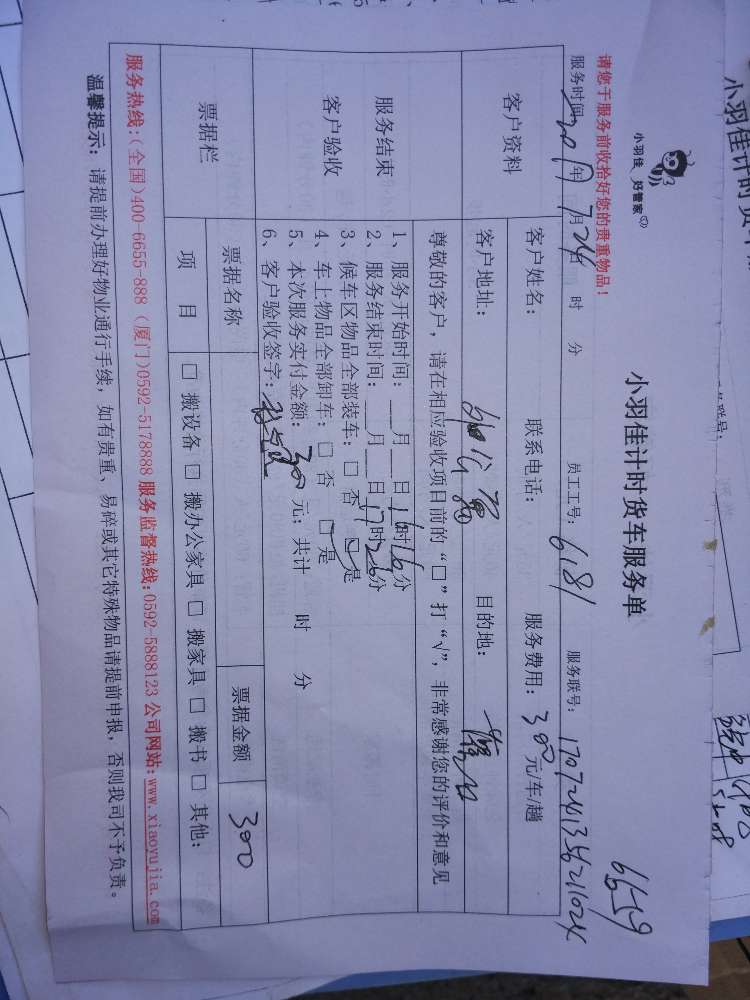 小羽佳 好管家
小羽佳计时货车服务单
6659
请您于服务前收拾好您的贵重物品!
服务时间: 年7月24日 时 分 员工工号: 6181 服务联号: 170724135621024
客户资料
客户姓名: 联系电话: 服务费用: 300元/车/趟
客户地址: 目的地:
服务结束
客户验收
尊敬的客户，请在相应验收项目前的“□”打“√”，非常感谢您的评价和意见
1、服务开始时间: ___月___日16时16分
2、服务结束时间: ___月___日17时26分
3、候车区物品全部装车: □ 否 □ 是
4、车上物品全部卸车: □ 否 □ 是
5、本次服务实付金额: 300 元; 共计 时 分
6、客户验收签字:
票据栏
票据名称 票据金额 300
项 目 □ 搬设备 □ 搬办公家具 □ 搬家具 □ 搬书 □ 其他:
服务热线:(全国)400-6655-888 (厦门)0592-5178888 服务监督热线:0592-5888123 公司网站:www.xiaoyujia.com
温馨提示: 请提前办理好物业通行手续, 如有贵重、易碎或其它特殊物品请提前申报, 否则我司不予负责。
小羽佳计时货